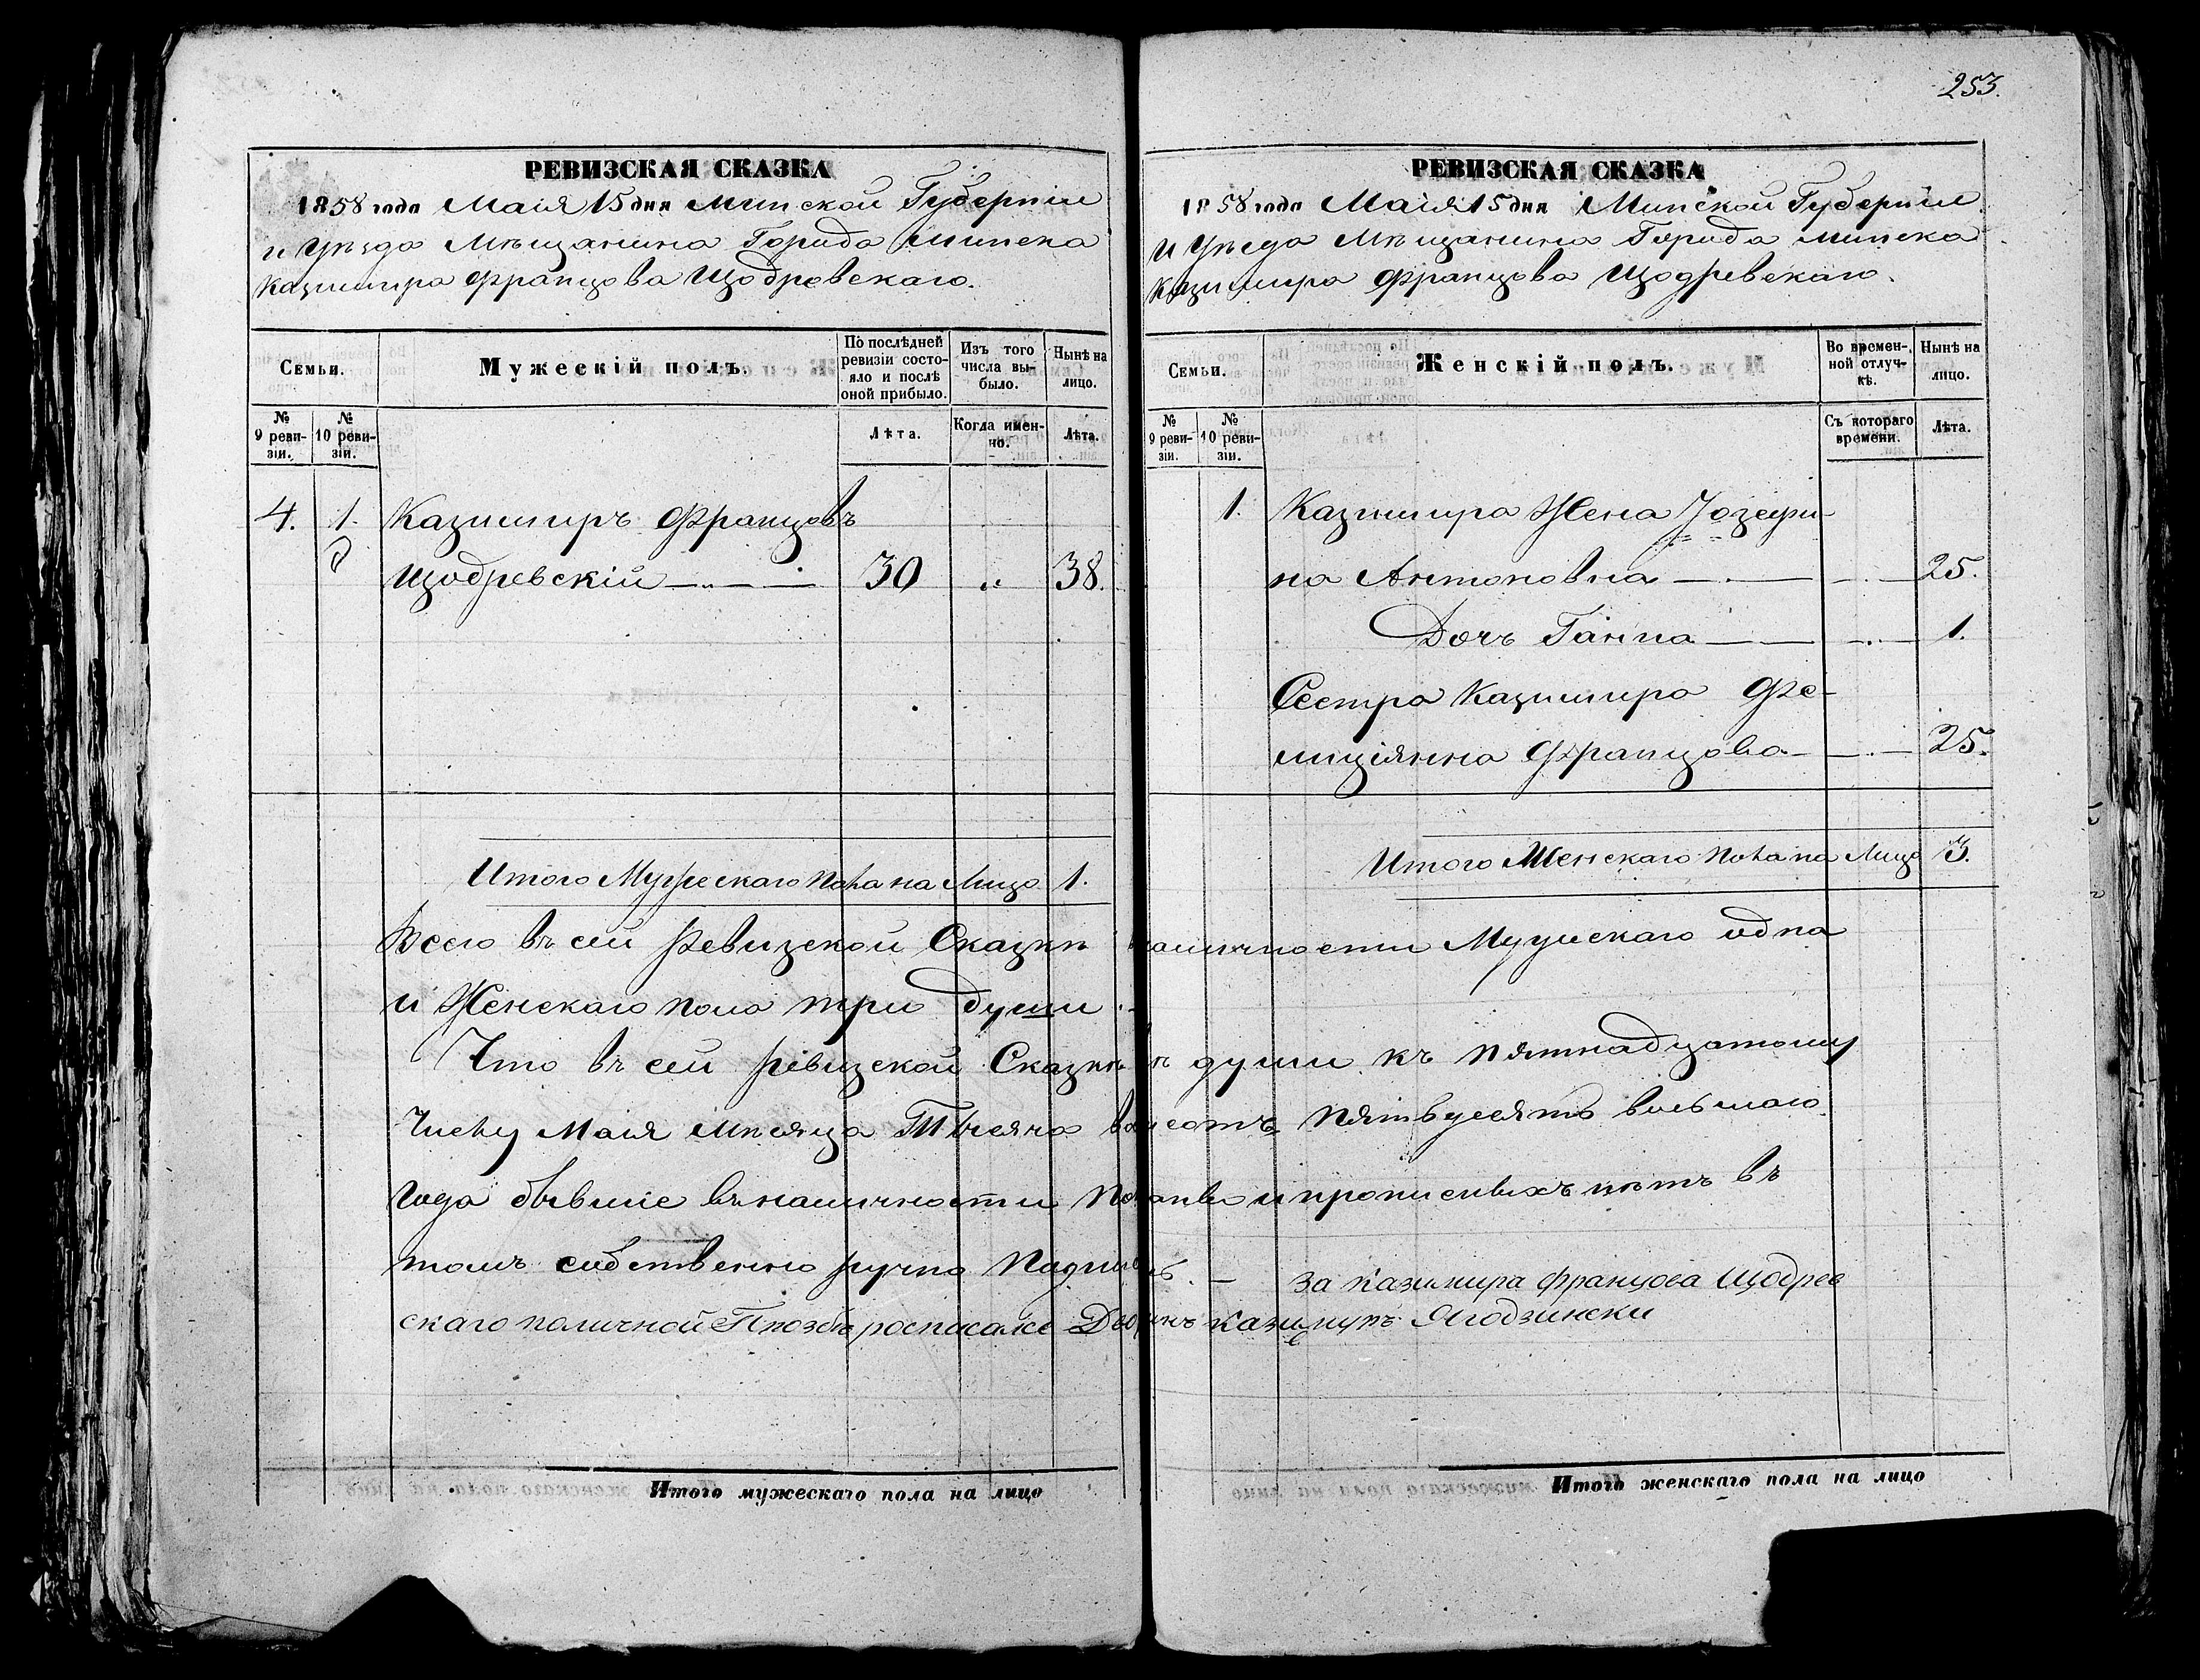 253.
РЕВИЗСКАЯ СКАЗКА
1858 года Маія 15 дня Минской Губерніи
и Уѣзда Мѣщанина Города Минска
Казимира Францова Щодровскаго.
Семьи.
Мужескій полъ.
По послѣдней ревизіи состояло и послѣ оной прибыло.
Изъ того числа выбыло.
Нынѣ на лицо.
№ 9 ревизіи.
№ 10 ревизіи.
Лѣта.
Когда именно.
Лѣта.
4. 1. Казимиръ Францовъ
Щодревскій 30 „ 38.
Итого Мужескаго Пола на Лицо 1.
РЕВИЗСКАЯ СКАЗКА
1858 года Маія 15 дня Минской Губерніи
и Уѣзда Мѣщанина Города Минска
Казимира Францова Щодревскаго.
Семьи.
Женскій полъ.
Во временной отлучкѣ.
Нынѣ на лицо.
№ 9 ревизіи.
№ 10 ревизіи.
Съ котораго времени.
Лѣта.
1. Казимира Жена Јозефи-
на Антоновна 25.
Дочъ Ганна 1.
Сестра Казимира Фе-
лиціянна Францова 25.
Итого Женскаго Пола на Лицо 3.
Всего въ сей Ревизской Сказки наличности Мужескаго одна
и Женскаго пола три души.
Что въ сей ревизской Сказкѣ души къ пятнадцатому
Числу Маія Мѣсяца Тысяча восемсотъ Пятьдесятъ восьмаго
Года бывшіе въ наличности Показаны и прописныхъ нѣтъ въ
томъ собственно ручно Подписъ. — За Казимира Францова Щодрев
скаго поличной Прозбѣ росписалсе Дворинъ Казимиръ Ягодзински
Итого мужескаго пола на лицо
Итого женскаго пола на лицо